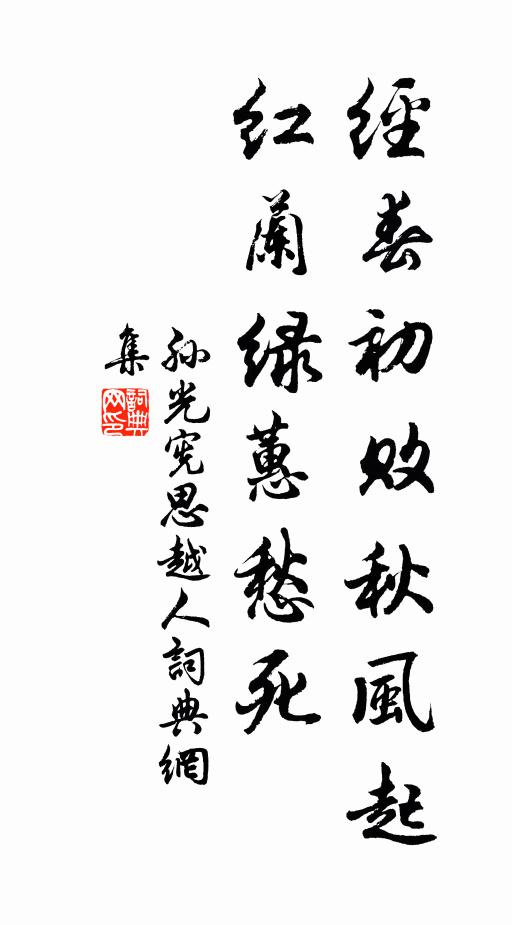 經春初敗秋風起
紅蘭緑蕙愁死
孫光宪思越人詞典網
集
詞典
网印